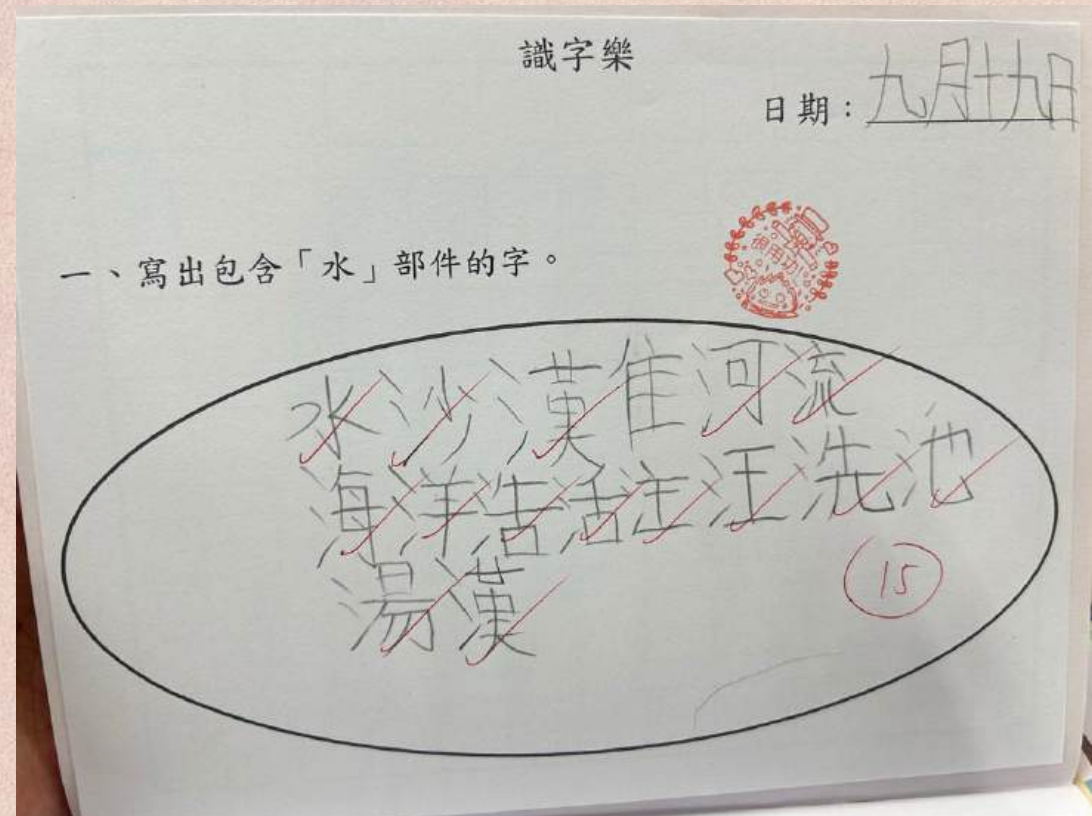 識字樂
日期：九月十九日
很用功!
一、寫出包含「水」部件的字。
水沙漢隹河流
海洋浩活注汪洗池
湯漢
15